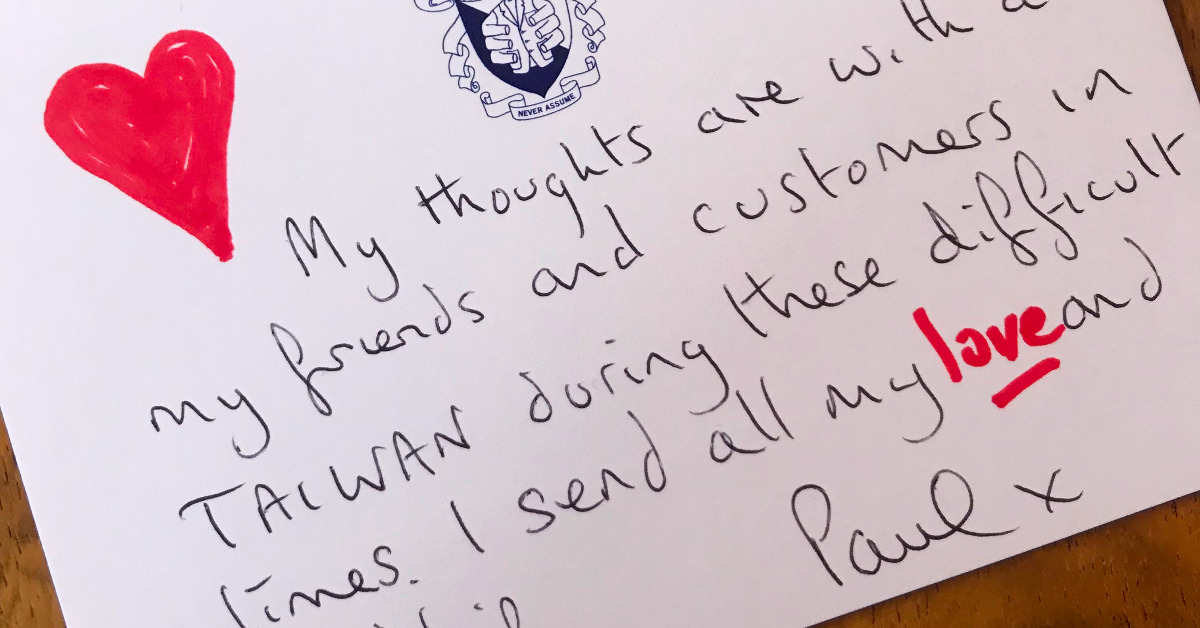 NEVER ASSUME
My thoughts are with
my friends and customers in
TAIWAN during these difficult
times. I send all my love and
Paul x